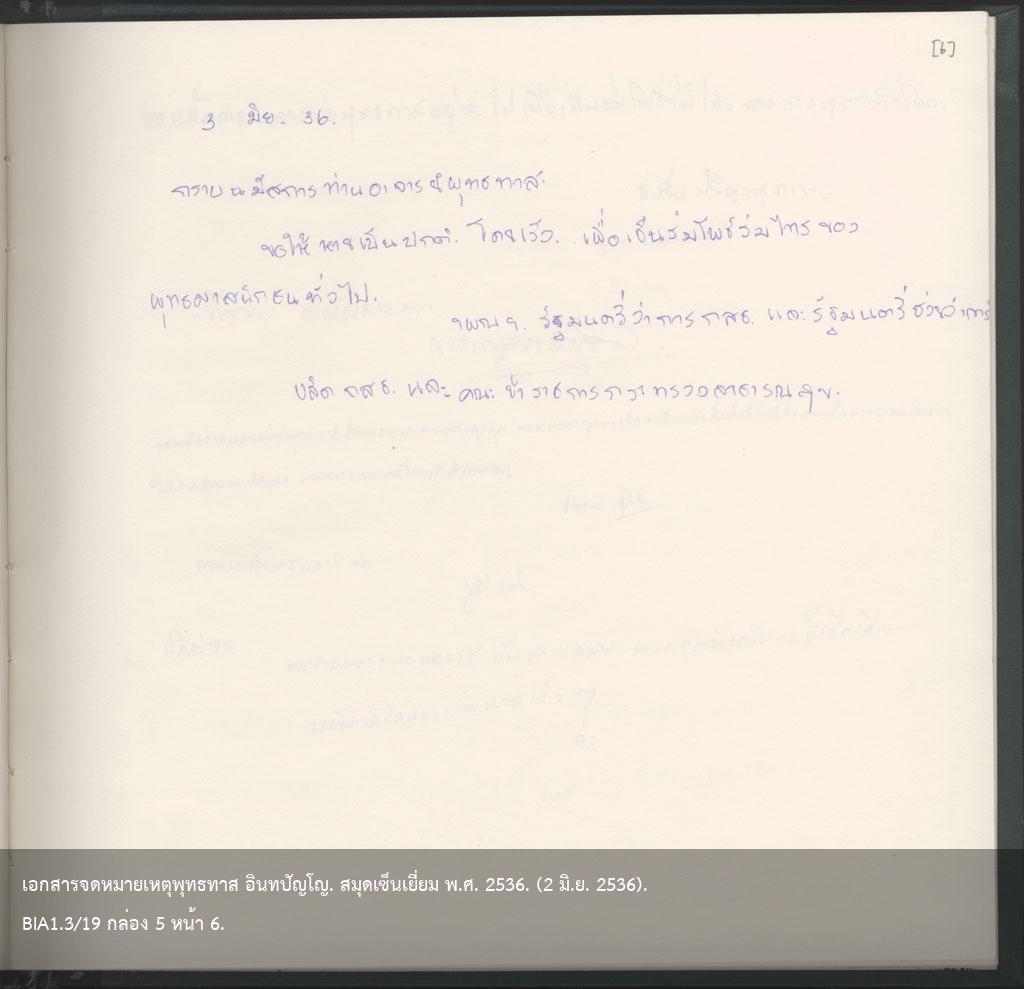 [6]
3 มิย. 36.
กราบนมัสการท่านอาจารย์พุทธทาส.
ขอให้หายเป็นปกติ. โดยเร็ว. เพื่อเป็นร่มโพธิ์ร่มไทรของ
พุทธศาสนิกชนทั่วไป.
ฯพณฯ. รัฐมนตรีว่าการ กสธ. และรัฐมนตรีช่วยว่าการ
ปลัด กสธ. และคณะข้าราชการกระทรวงสาธารณสุข.
เอกสารจดหมายเหตุพุทธทาส อินทปัญโญ. สมุดเซ็นเยี่ยม พ.ศ. 2536. (2 มิ.ย. 2536).
BIA1.3/19 กล่อง 5 หน้า 6.